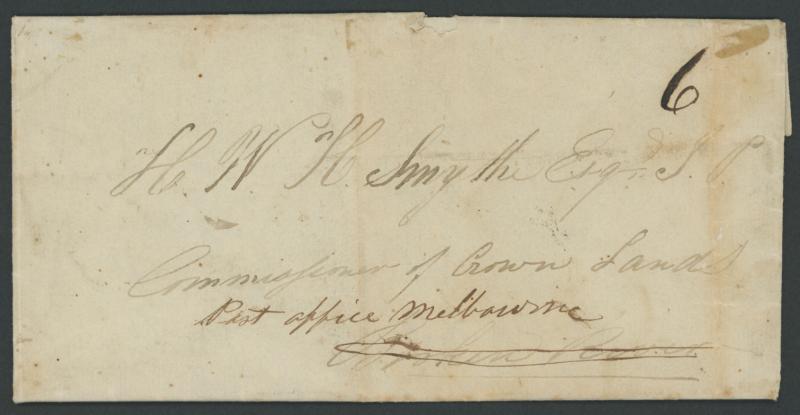 6
H. W. H. Smythe Esqr. J. P.
Commissioner of Crown Lands
Post office Melbourne
River